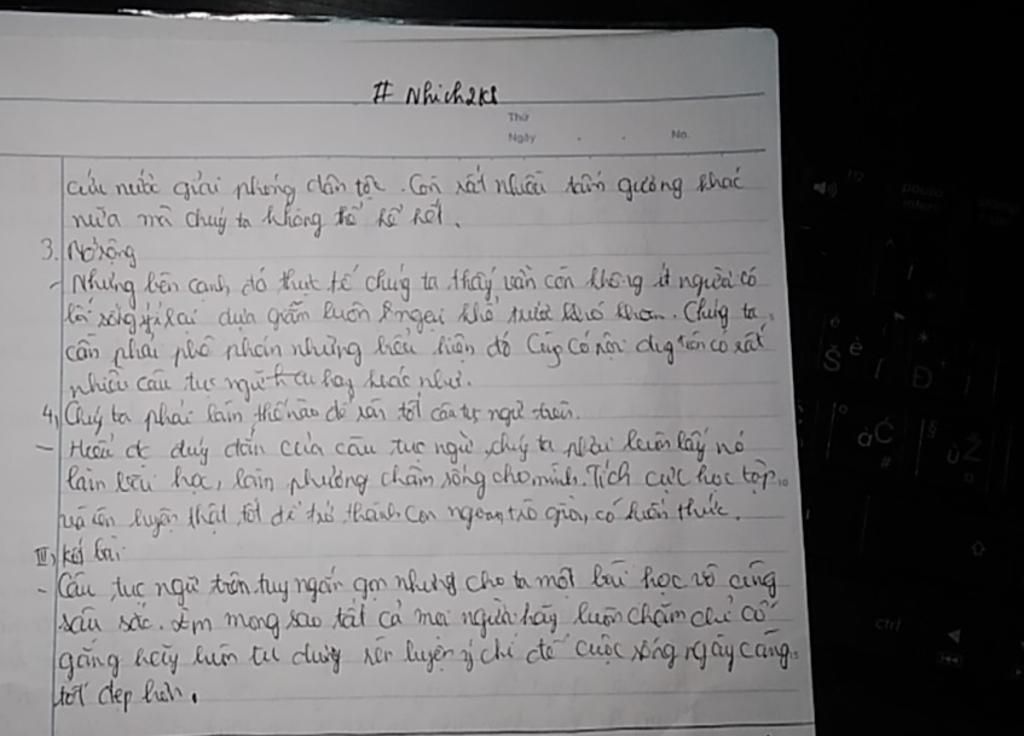 # Nhich2k8
Thứ
Ngày . . No.
cứu nước giải phóng dân tộc. Còn rất nhiều tấm gương khác
nữa mà chúng ta không thể kể hết.
3. Mở rộng
- Nhưng bên cạnh đó thực tế chúng ta thấy vẫn còn không ít người có
lối sống ỷ lại dựa giẫm luôn ngại khó trước khó khăn. Chúng ta
cần phải phê phán những biểu hiện đó
nhiều câu tục ngữ hay khác như.
4, Chúg ta phải làm thế nào để tốt câu tục ngữ trên.
- Hiểu đc đúng đắn của câu tục ngữ, chúg ta phải luôn lấy nó
làm bài học, làm phương châm sống cho mình. Tích cực học tập
và rèn luyện thật tốt để trở thành con ngoan trò giỏi, có kiến thức.
III, Kết bài
- Câu tục ngữ trên tuy ngắn gọn nhưng cho ta một bài học vô cùng
sâu sắc. Em mong sao tất cả mọi người hãy luôn chăm chỉ cố
gắng hãy luôn tu dưỡng rèn luyện ý chí để cuộc sống ngày càng
tốt đẹp hơn.
pause
ctrl
Š
è
Đ
Č
à
#
§
ù
Ž